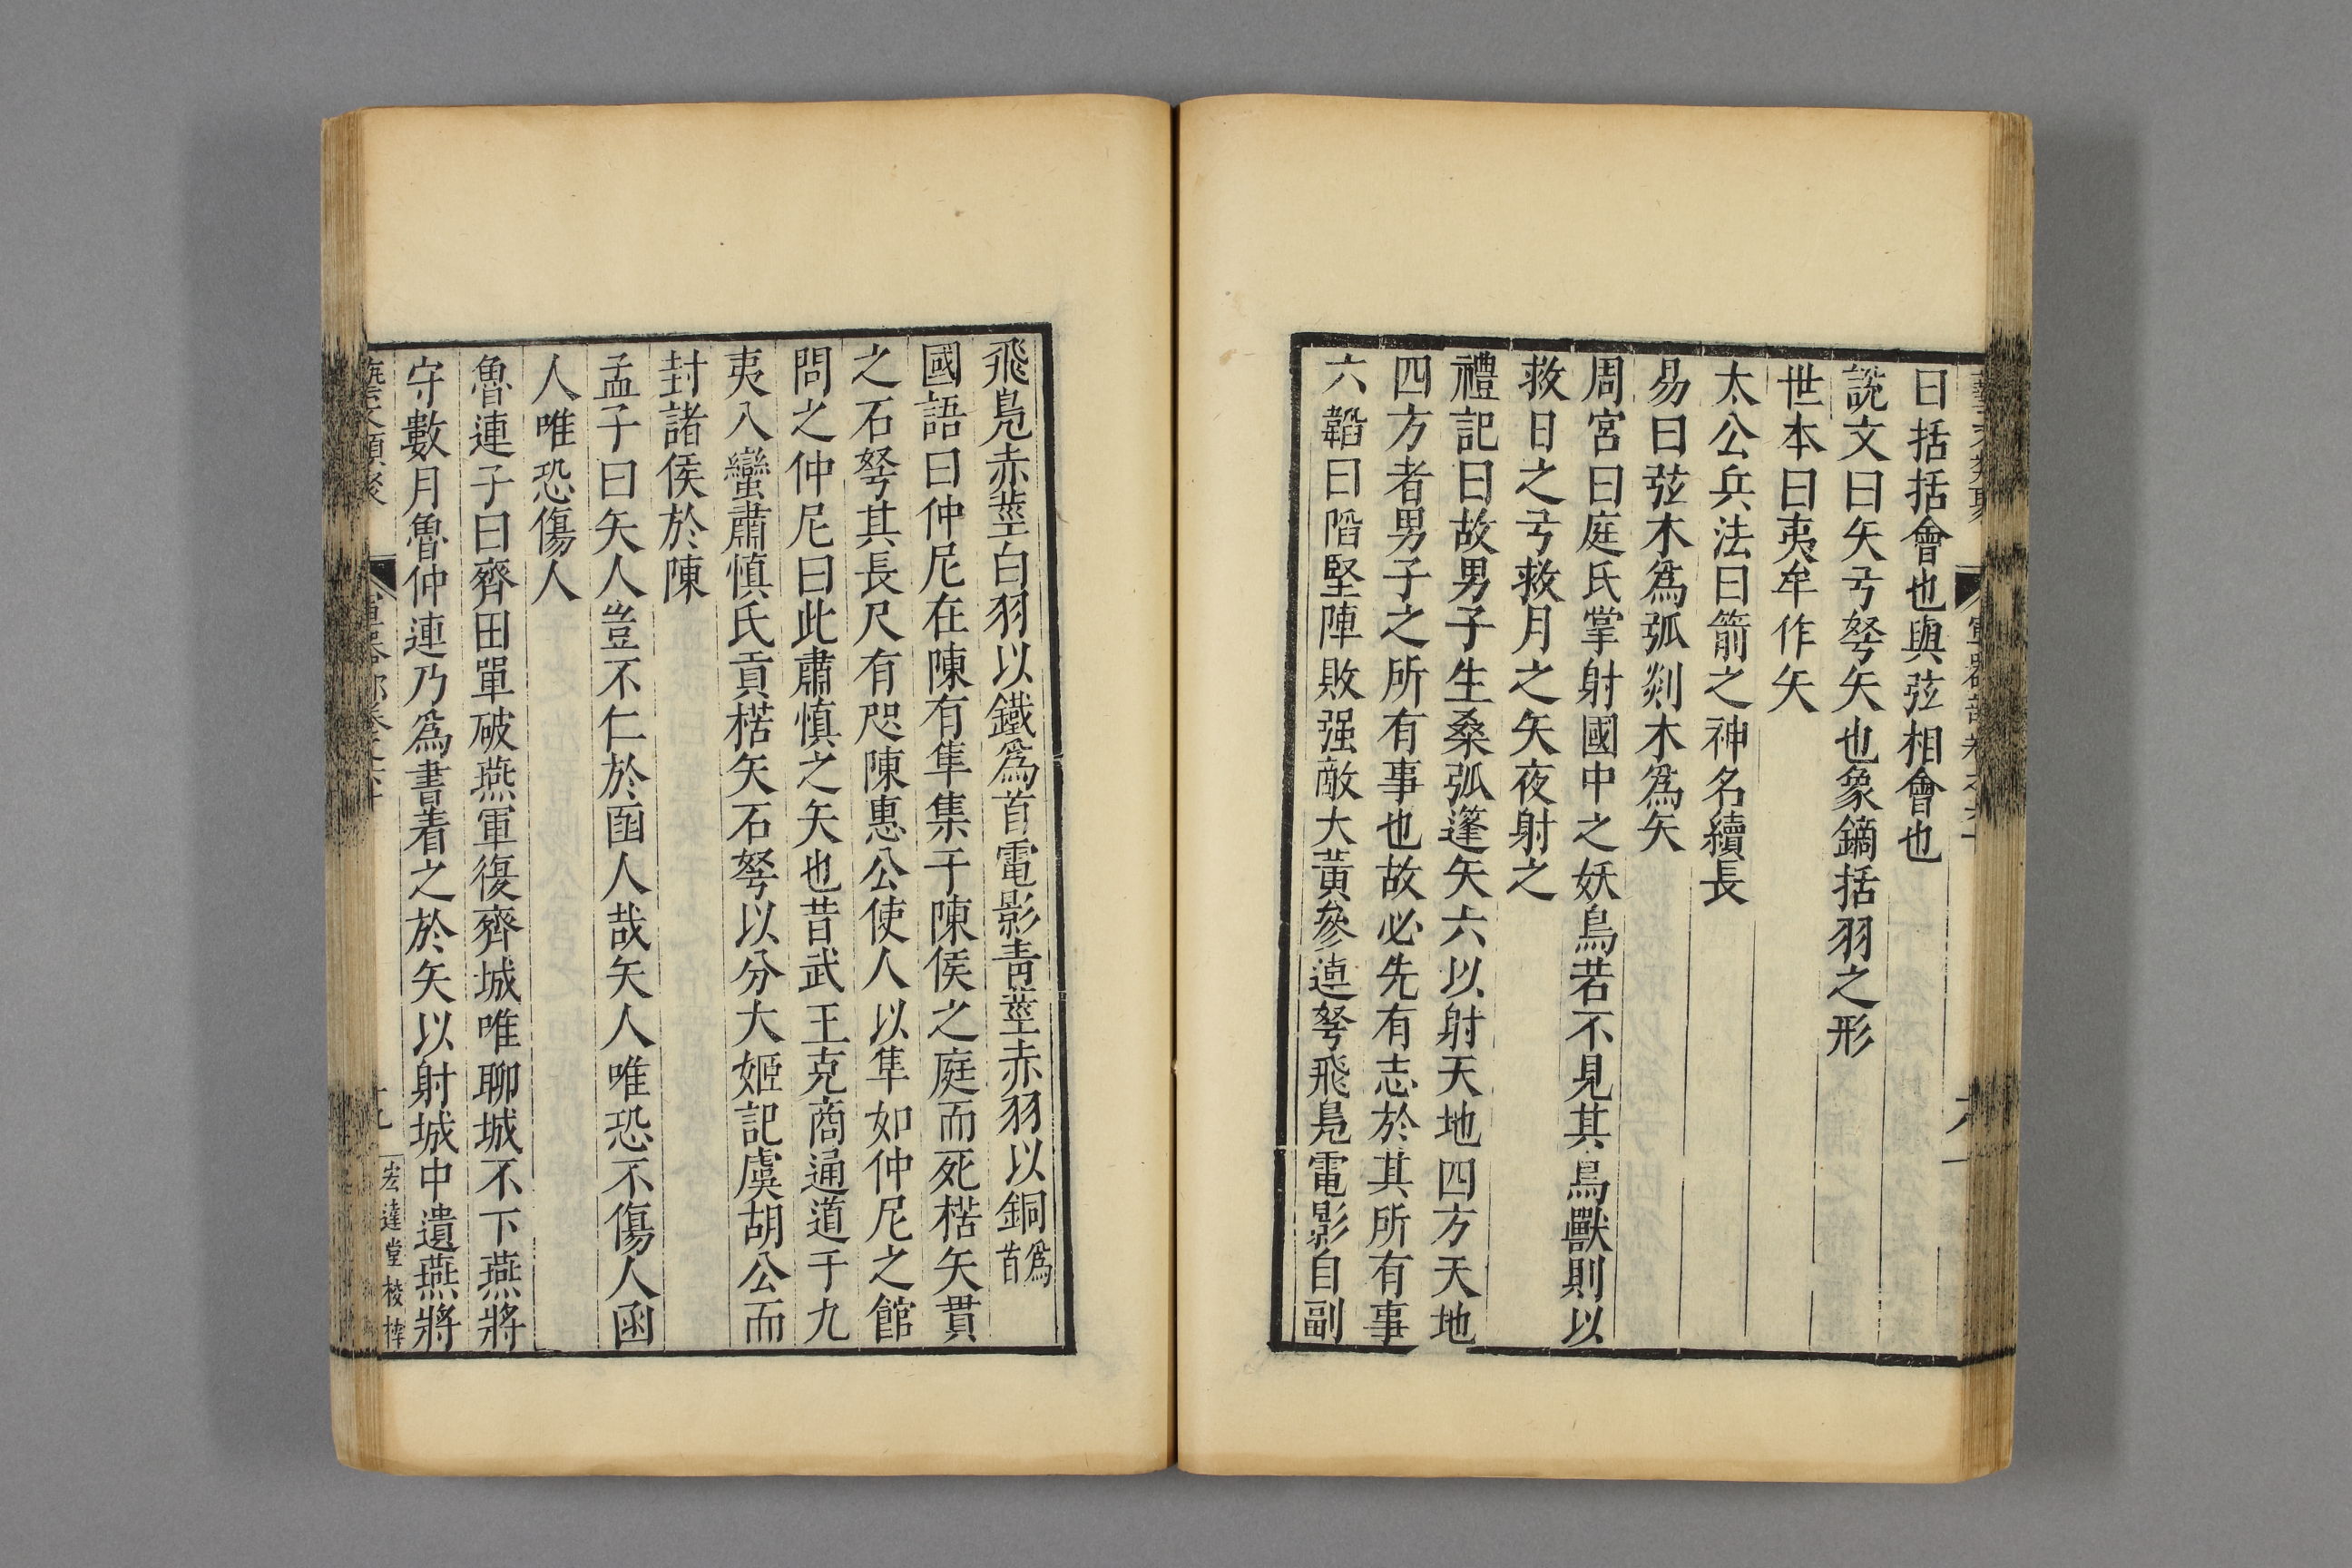 曰括括會也與弦相會也
說文曰矢弓弩矢也象鏑括羽之形
世本曰夷牟作矢
太公兵法曰箭之神名續長
易曰弦木爲弧剡木爲矢
周宮曰庭氏掌射國中之妖鳥若不見其鳥獸則以
救日之弓救月之矢夜射之
禮記曰故男子生桑弧蓬矢六以射天地四方天地
四方者男子之所有事也故必先有志於其所有事
六韜曰陷堅陣敗强敵大黃參連弩飛鳧電影自副
飛鳧赤莖白羽以鐵爲首電影青莖赤羽以銅爲首
國語曰仲尼在陳有隼集于陳侯之庭而死楛矢貫
之石弩其長尺有咫陳惠公使人以隼如仲尼之館
問之仲尼曰此肅慎之矢也昔武王克商通道于九
夷八蠻肅慎氏貢楛矢石弩以分大姬記虞胡公而
封諸侯於陳
孟子曰矢人豈不仁於函人哉矢人唯恐不傷人函
人唯恐傷人
魯連子曰齊田單破燕軍復齊城唯聊城不下燕將
守數月魯仲連乃爲書着之於矢以射城中遺燕將
宏達堂校梓